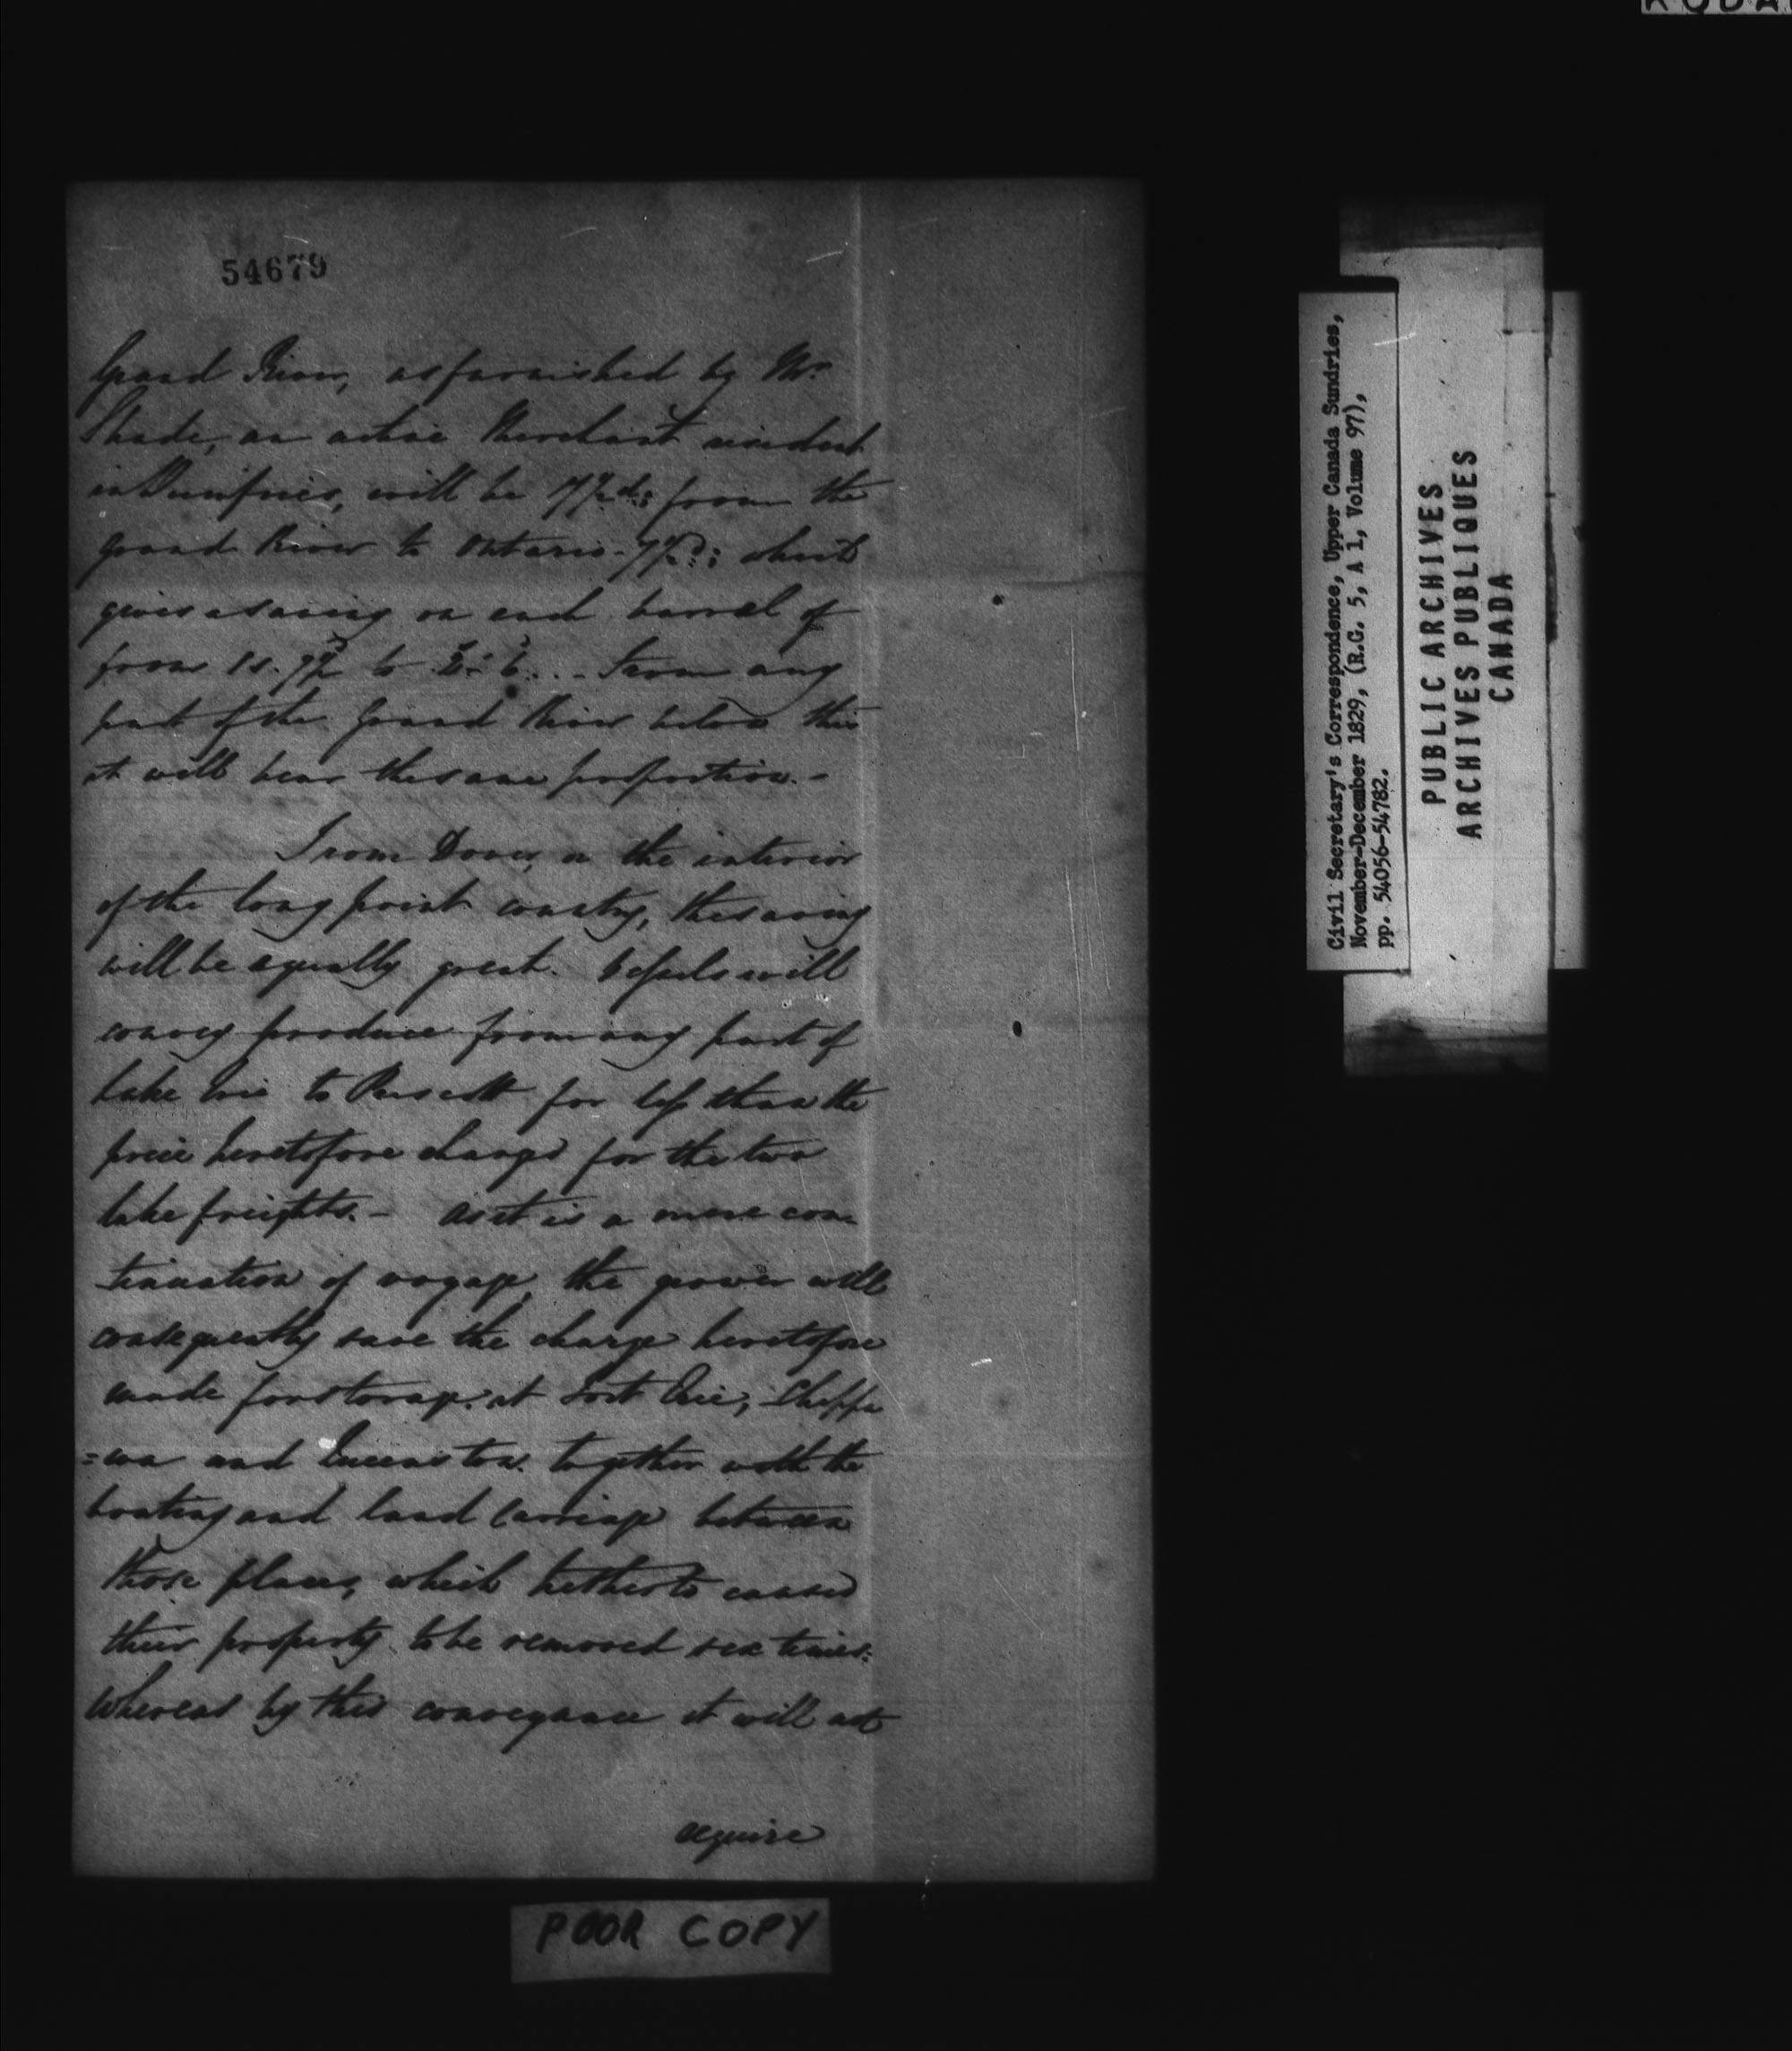 54679
Grand River, as furnished by Mr.
Shade, an active Merchant resident
in Dumfries, will be 7½d: from the
Grand River to Ontario - 7½d: which
gives a saving on each barrel of
from 1s. 7½ to 2s. 6.. - From any
part of the Grand River below this
it will bear the same proportion. -
From Dover, or the interior
of the long point country, the saving
will be equally great. Vessels will
convey produce from any part of
Lake Erie to Prescott for less than the
price heretofore charged for the two
lake freights. - As it is a mere con-
tinuation of voyage, the grower will
consequently save the charge heretofore
made for storage at Fort Erie, Chippa
=wa and Queenston. together with the
boating and land carriage between
those places, which hitherto caused
their property to be removed six times:
Whereas by this conveyance it will not
require
POOR COPY
Civil Secretary's Correspondence, Upper Canada Sundries,
November-December 1829, (R.G. 5, A 1, Volume 97),
pp. 54056-54782.
PUBLIC ARCHIVES
ARCHIVES PUBLIQUES
CANADA